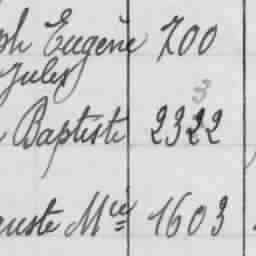 ph Eugène 700
Jules
3
Baptiste 2322
guste Mie 1603